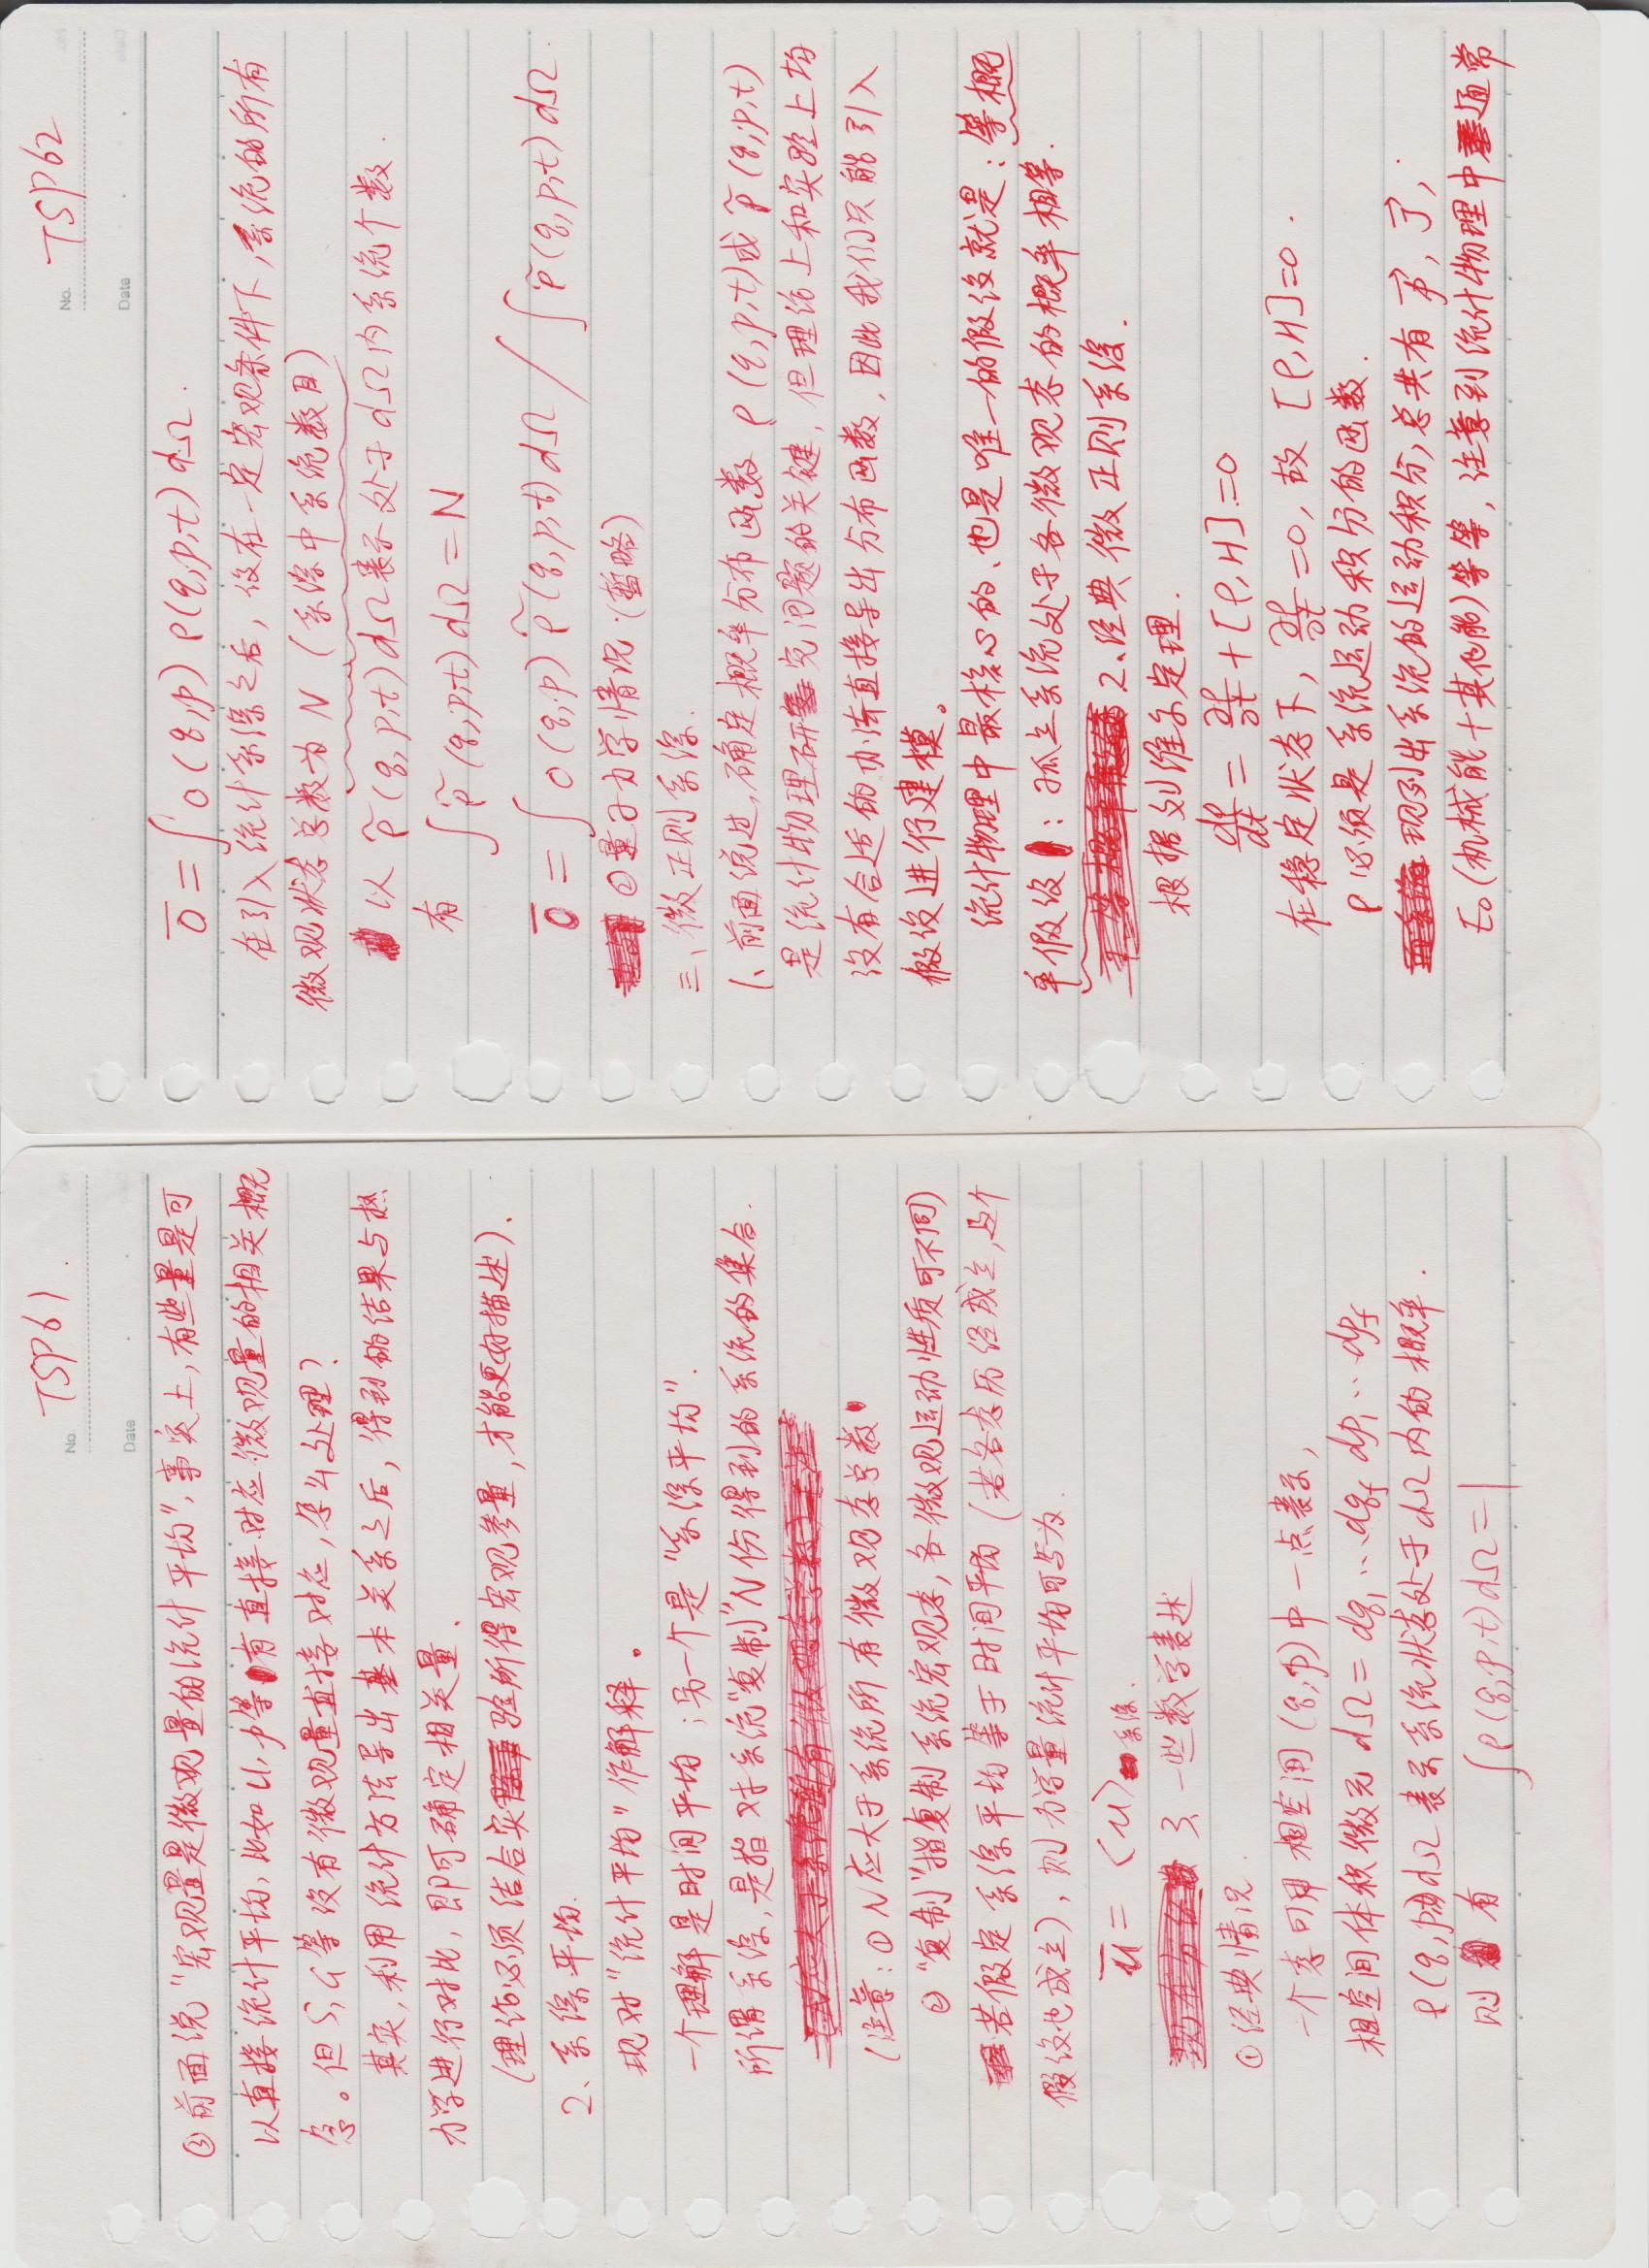 No. TSP61.
Date
③前面说"宏观量是微观量的统计平均",事实上,有些量是可
以直接统计平均,比如U,p等有直接对应微观量的相关概
念。但S,G等没有微观量直接对应,怎么处理?
其实,利用统计方法导出基本关系之后,得到的结果与热
力学进行对比,即可确定相关量.
(理论必须结合实验所得宏观参量,才能更好描述).
2、系综平均.
现对"统计平均"作解释。
一个理解是时间平均;另一个是"系综平均".
所谓系综,是指对系统"复制"N份得到的系统的集合.
(注意:①N应大于系统所有微观态总数
②"复制"指复制系统宏观态,各微观运动性质可不同)
若假定系综平均等于时间平均(若各态历经成立,这个
假设也成立),则力学量统计平均可写为.
ū = ⟨u⟩系综.
3、一些数学表述
①经典情况.
一个态可用相空间(q,p)中一点表示,
相空间体积微元dΩ=dq₁…dq_f dp₁…dp_f
ρ(q,p,t)dΩ表示系统状态处于dΩ内的概率.
则有 ∫ρ(q,p,t)dΩ=1
No. TSP62
Date
Ō=∫O(q,p) ρ(q,p,t)dΩ.
在引入统计系综之后,设在一定宏观条件下,系统的所有
微观状态总数为N(系综中系统数目)
以 ρ̃(q,p,t)dΩ表示处于dΩ内系统个数.
有 ∫ρ̃(q,p,t)dΩ=N
Ō=∫O(q,p)ρ̃(q,p,t)dΩ / ∫ρ̃(q,p,t)dΩ.
②量子力学情况.(暂略)
三、微正则系综.
1、前面说过,确定概率分布函数 ρ(q,p,t)或ρ̃(q,p,t)
是统计物理研究问题的关键,但理论上和实验上均
没有合适的办法直接导出分布函数,因此我们只能引入
假设进行建模。
统计物理中最核心的、也是唯一的假设就是:等概
率假设:孤立系统处于各微观态的概率相等.
2、经典微正则系综.
根据刘维尔定理.
dρ/dt = ∂ρ/∂t + [ρ,H]=0
在稳定状态下,∂ρ/∂t=0,故 [ρ,H]=0.
ρ必须是系统运动积分的函数.
现列出系统的运动积分,总共有 p⃗, J⃗,
E₀(机械能+其他能)等等,注意到统计物理中通常